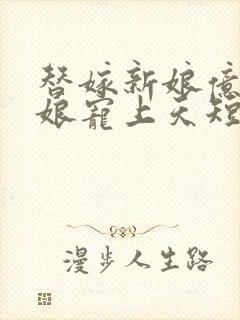 替嫁新娘亿
娘宠上天短
漫步人生路